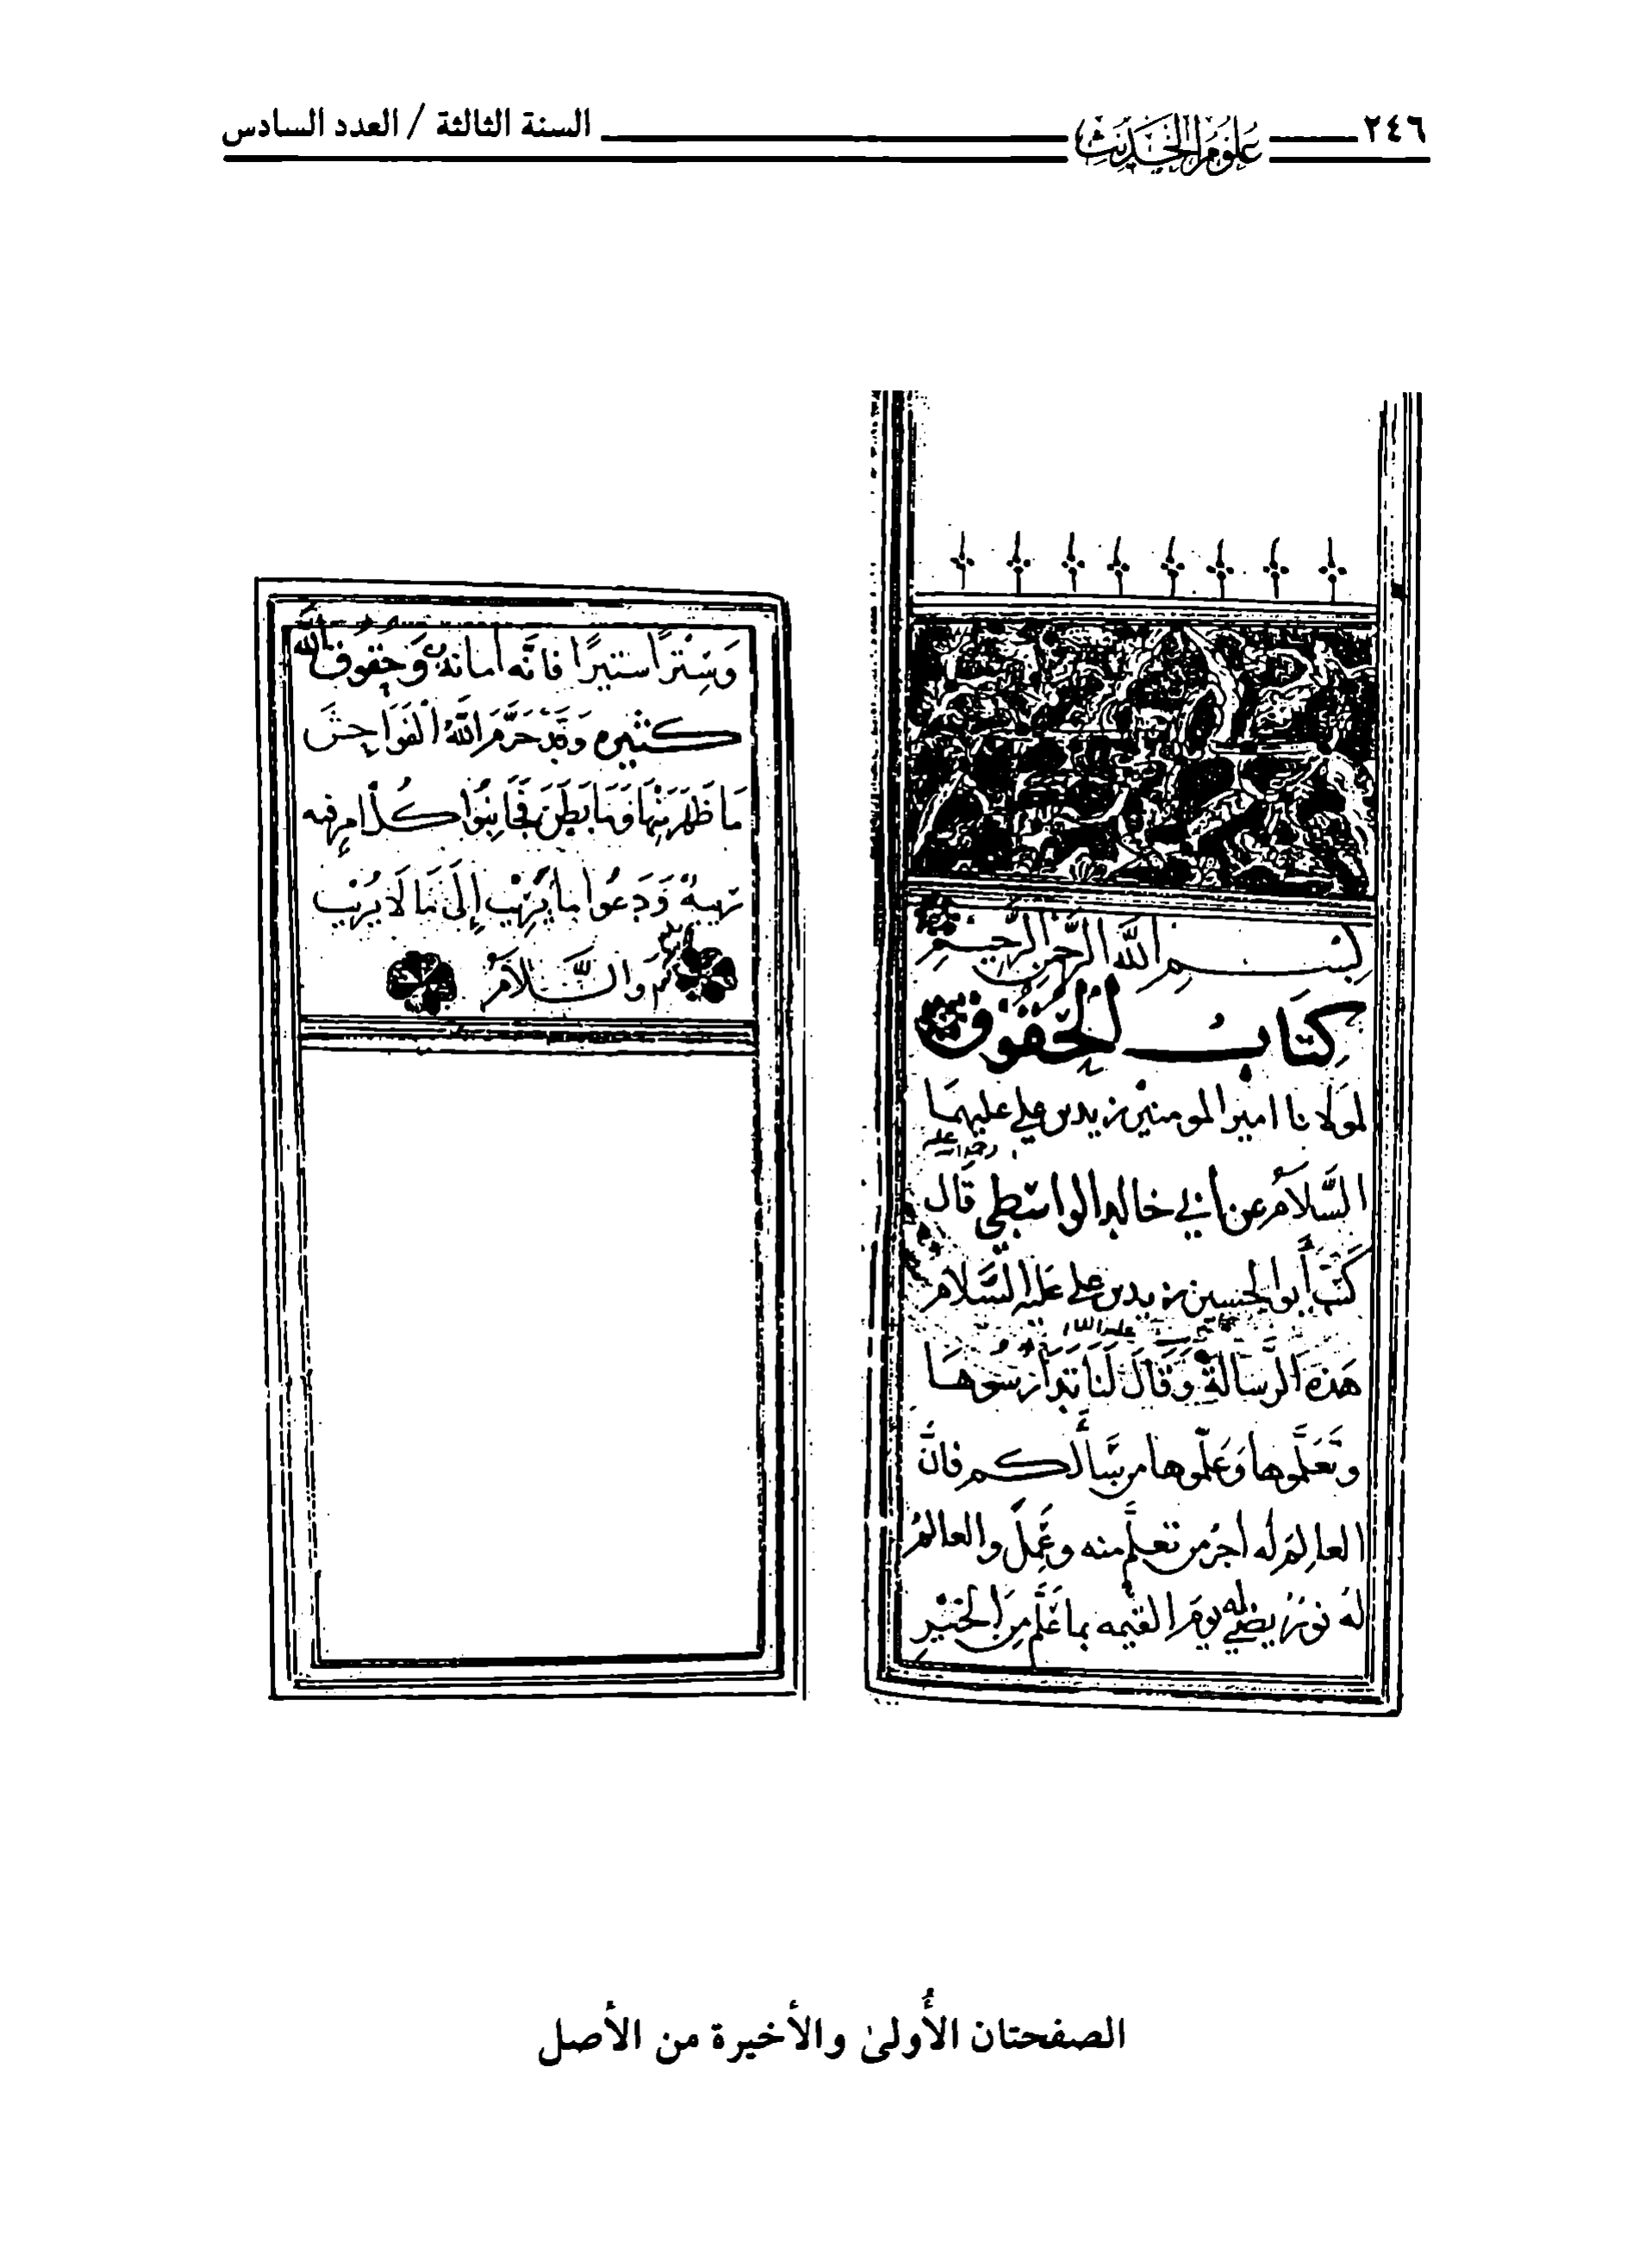 ٢٤٦ علوم الحديث السنة الثالثة / العدد السادس
بسم الله الرحمن الرحيم
كتَابُ الحقوق
لمولانا امير المومنين زيد بن علي عليهما
السَّلامُ عن أبي خالد الواسطي قال
كتب أبو الحسين زيد بن علي عليه السَّلام
هَذه الرّسالة وَقَالَ لَنَا تَدَارَسُوهَا
وتَعَلَّموها وَعَلّموها من سَألكم فانَّ
العالِمَ لَه أجرُ من تعلَّم منه وعَمِلَ والعالمُ
لهُ نورٌ يضئ له يومَ القيمه بما عَلَّم مِنَ الخَيْرِ
وَسِتْرًا ستيرًا فانَّه أمانة وَحقوق الله
كثيره وَقَدْ حَرَّمَ اللهُ الْفَوَاحِشَ
مَا ظَهَرَ مِنْهَا وَمَا بَطَنَ فَجَانِبُوا كُلَّ امرٍ فيه
ريبةٌ وَدَعُوا مَا يُرِيْب إلَى مَا لَا يُرِيْب
والسَّلامُ
الصفحتان الأُولىٰ والأخيرة من الأصل